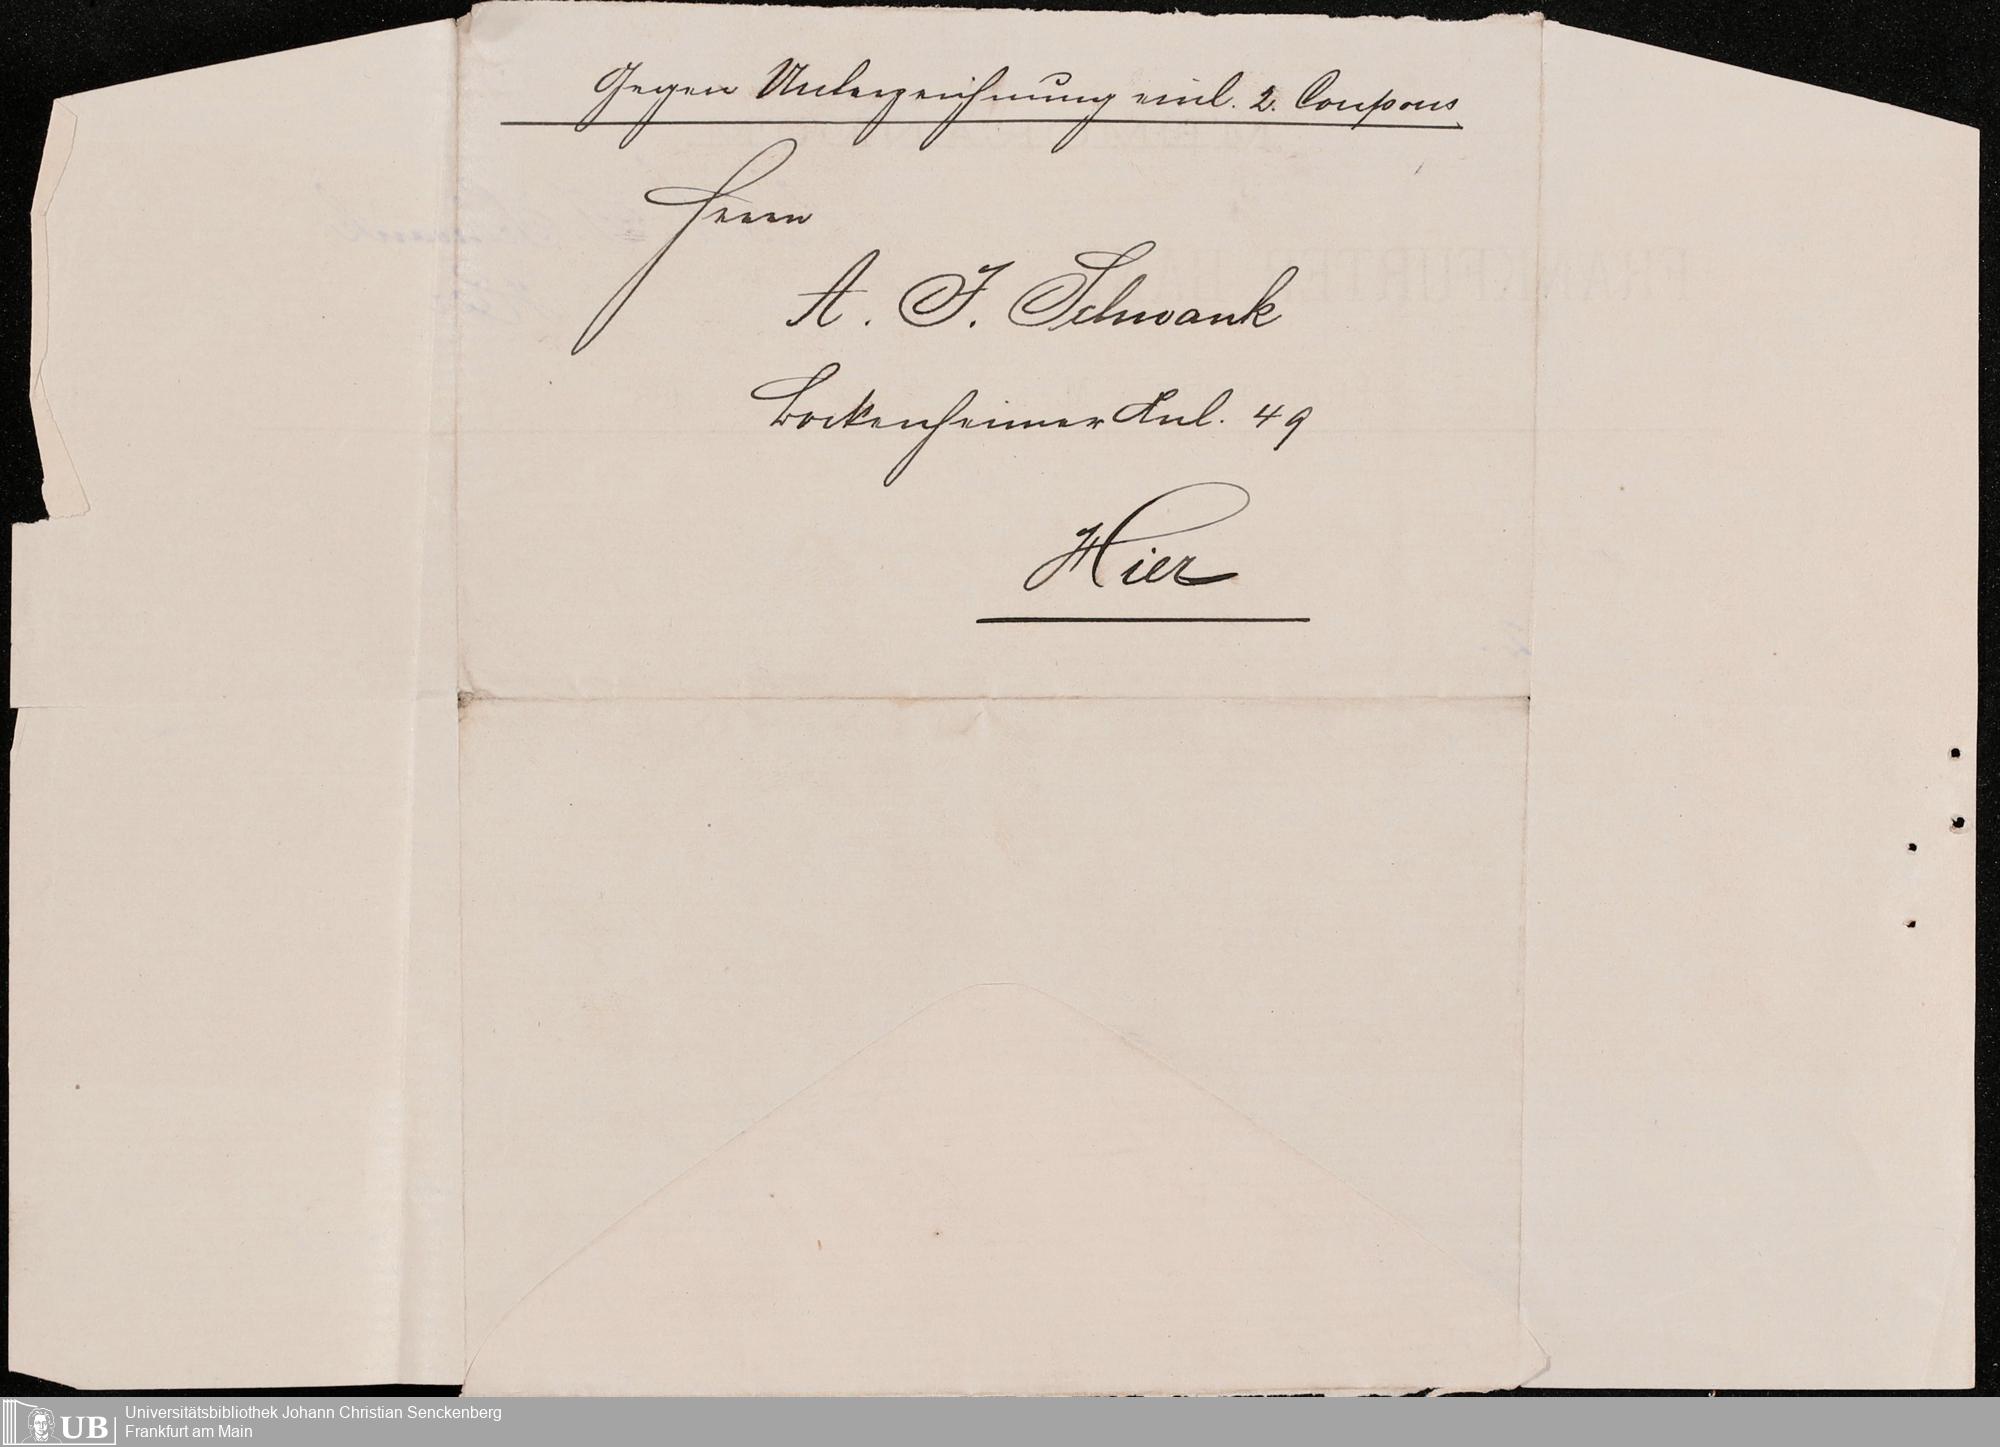 Gegen Unterzeichnung einl. 2. Coupons
Herrn
A. J. Schwank
Bockenheimer Anl. 49
Hier
UB
Universitätsbibliothek Johann Christian Senckenberg
Frankfurt am Main